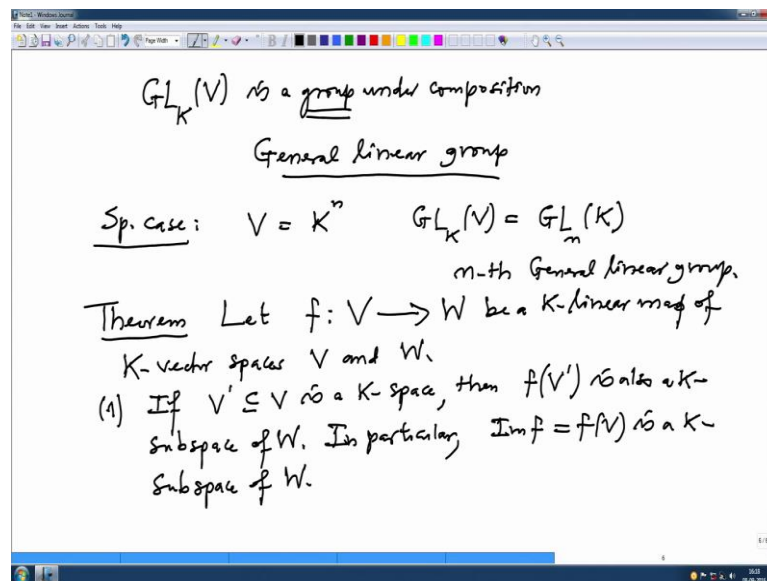 Note1 - Windows Journal
File Edit View Insert Actions Tools Help
Page Width
B I
GL_K(V) is a group under composition
General linear group
Sp. case: V = K^n GL_K(V) = GL_n(K)
n-th General linear group.
Theorem Let f: V → W be a K-linear map of
K-vector spaces V and W.
(1) If V' ⊆ V is a K-space, then f(V') is also a K-
subspace of W. In particular, Im f = f(V) is a K-
subspace of W.
6
16:18